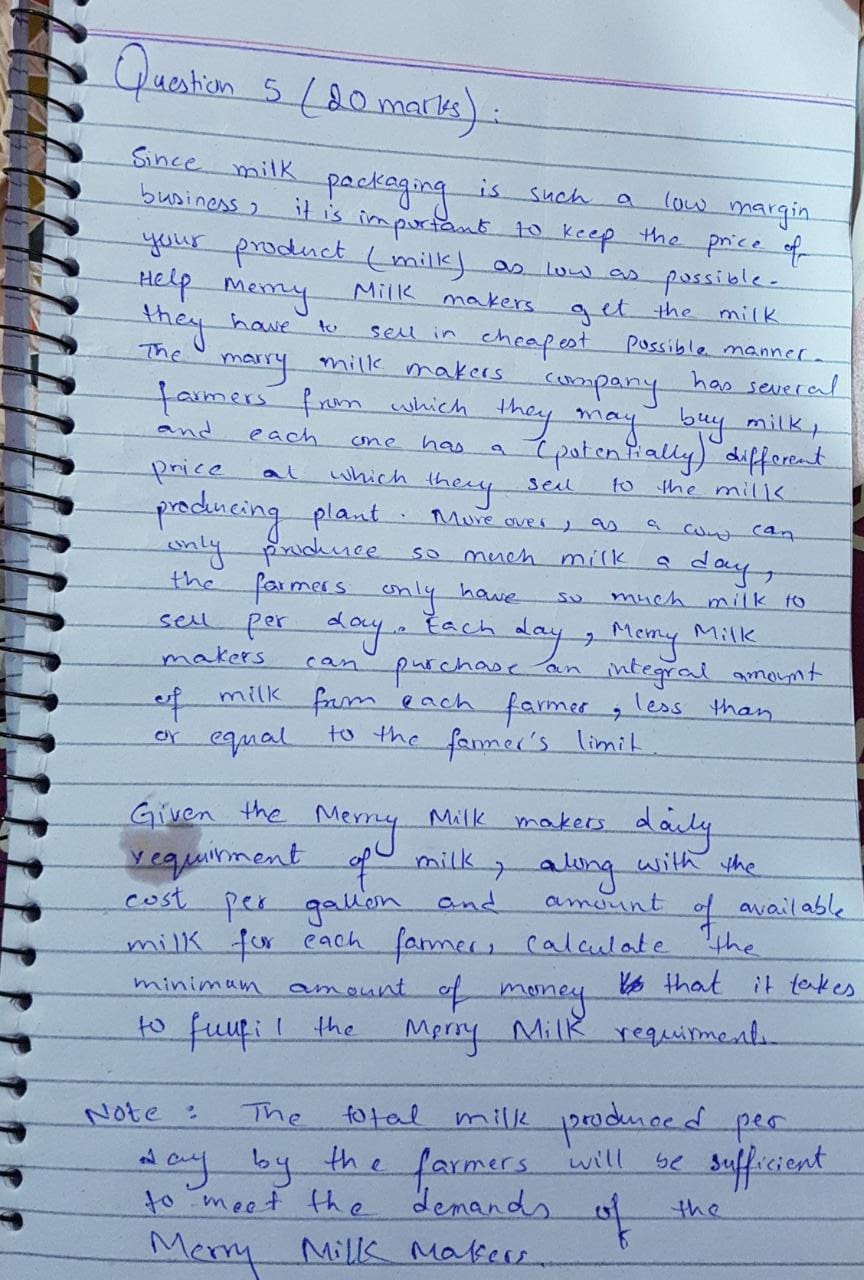 Question 5 (20 marks):
Since milk packaging is such a low margin
business, it is important to keep the price of
your product (milk) as low as possible.
Help Merry Milk makers get the milk
they have to sell in cheapest possible manner.
The marry milk makers company has several
farmers from which they may buy milk,
and each one has a (potentially) different
price at which they sell to the milk
producing plant. More over, as a cow can
only produce so much milk a day,
the farmers only have so much milk to
sell per day. Each day, Merry Milk
makers can purchase an integral amount
of milk from each farmer, less than
or equal to the farmer's limit.
Given the Merry Milk makers daily
requirment of milk, along with the
cost per gallon and amount of available
milk for each farmer, calculate the
minimum amount of money that it takes
to fuufil the Merry Milk requirments.
Note: The total milk produced per
day by the farmers will be sufficient
to meet the demands of the
Merry Milk Makers.